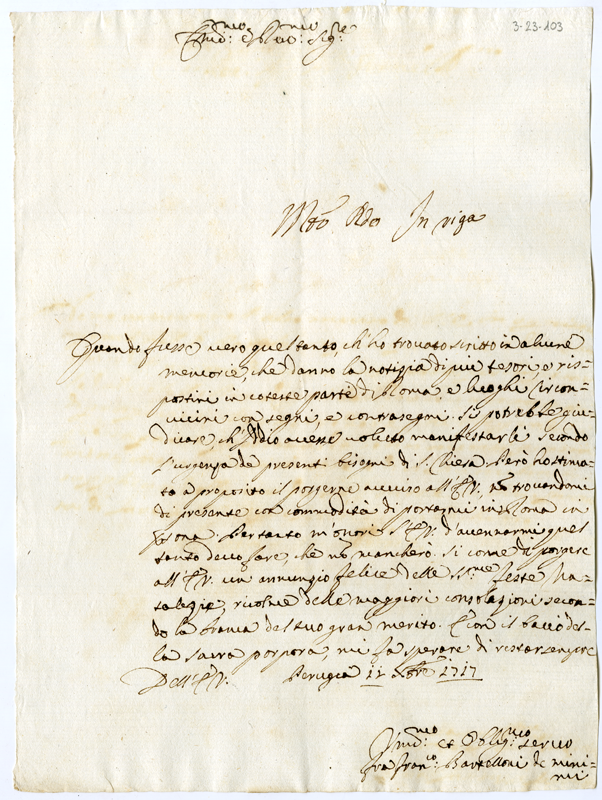 3-23-103
Em.mo e R.mo Sig.re
Quando fusse vero quel tanto, ch'ho trovato scritto in alcune
memorie, che danno la notizia di più tesori, o ris=
postini in coteste parte di Roma, e luoghi circon=
vicini con segni, e contrasegni. Si potrebbe giu=
dicare ch'Iddio avesse voluto manifestarle secondo
l'urgenza de presenti bisogni di S. Chiesa. Però ho stima=
to a proposito il porgerne avviso all'E.V. nō trovandomi
di presente con commodità di portarmi in Roma in
persona. Pertanto m'onori l'E.V. d'accennarmi quel
tanto devo fare, che nō mancherò. Si come di porgere
all'E.V. un annunzio felice delle S.me feste Na=
talezie, ricolme delle maggiori consolazioni secon=
do la brama del suo gran merito. E con il bacio del=
la sacra porpora, mi fa sperare di restar sempre
Dell'E.V. Perugia 11 Xbre 1717
Um.mo et Oblig.mo servo
fra Fran.co Bartolloni de mini=
mi